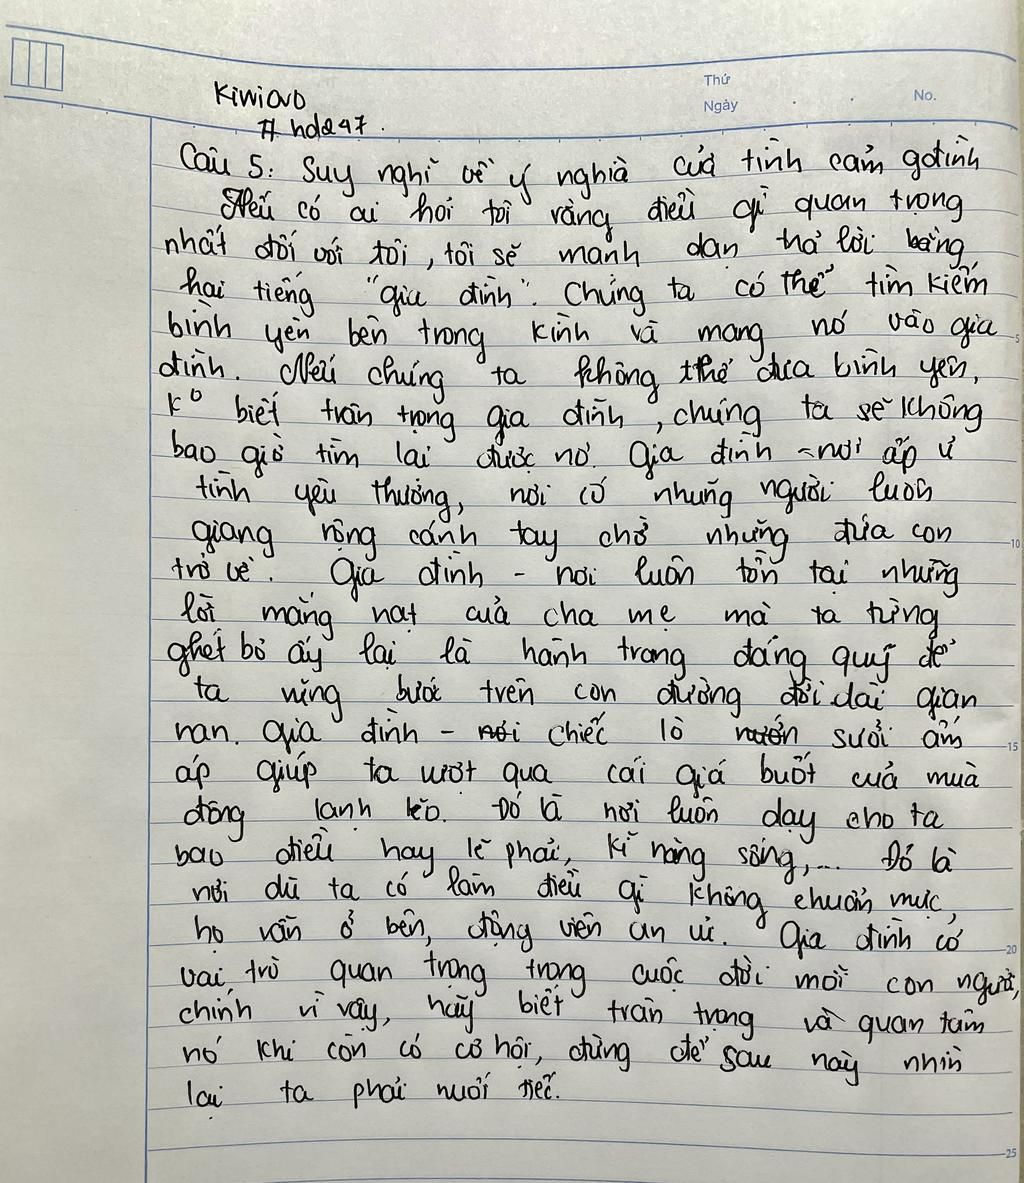 Thứ
Ngày
No.
Kiwiovo
# hd247.
Câu 5: Suy nghĩ về ý nghĩa của tình cảm gđình
Nếu có ai hỏi tôi rằng điều gì quan trọng
nhất đối với tôi, tôi sẽ mạnh dạn trả lời bằng
hai tiếng "gia đình". Chúng ta có thể tìm kiếm
bình yên bên trong kính và mang nó vào gia
đình. Nếu chúng ta không thể đưa bình yên,
k° biết trân trọng gia đình, chúng ta sẽ không
bao giờ tìm lại được nó. Gia đình - nơi ấp ủ
tình yêu thương, nơi có những người luôn
giang rộng cánh tay chờ những đứa con
trở về. Gia đình - nơi luôn tồn tại những
lời mắng nạt của cha mẹ mà ta từng
ghét bỏ ấy lại là hành trang đáng quý để
ta vững bước trên con đường đời dài gian
nan. Gia đình - nơi chiếc lò sưởi ấm
áp giúp ta vượt qua cái giá buốt của mùa
đông lạnh lẽo. Đó là nơi luôn dạy cho ta
bao điều hay lẽ phải, kĩ năng sống,... Đó là
nơi dù ta có làm điều gì không chuẩn mực,
họ vẫn ở bên, động viên an ủi. Gia đình có
vai trò quan trọng trong cuộc đời mỗi con người,
chính vì vậy, hãy biết trân trọng và quan tâm
nó khi còn có cơ hội, đừng để sau này nhìn
lại ta phải nuối tiếc.
5
10
15
20
25